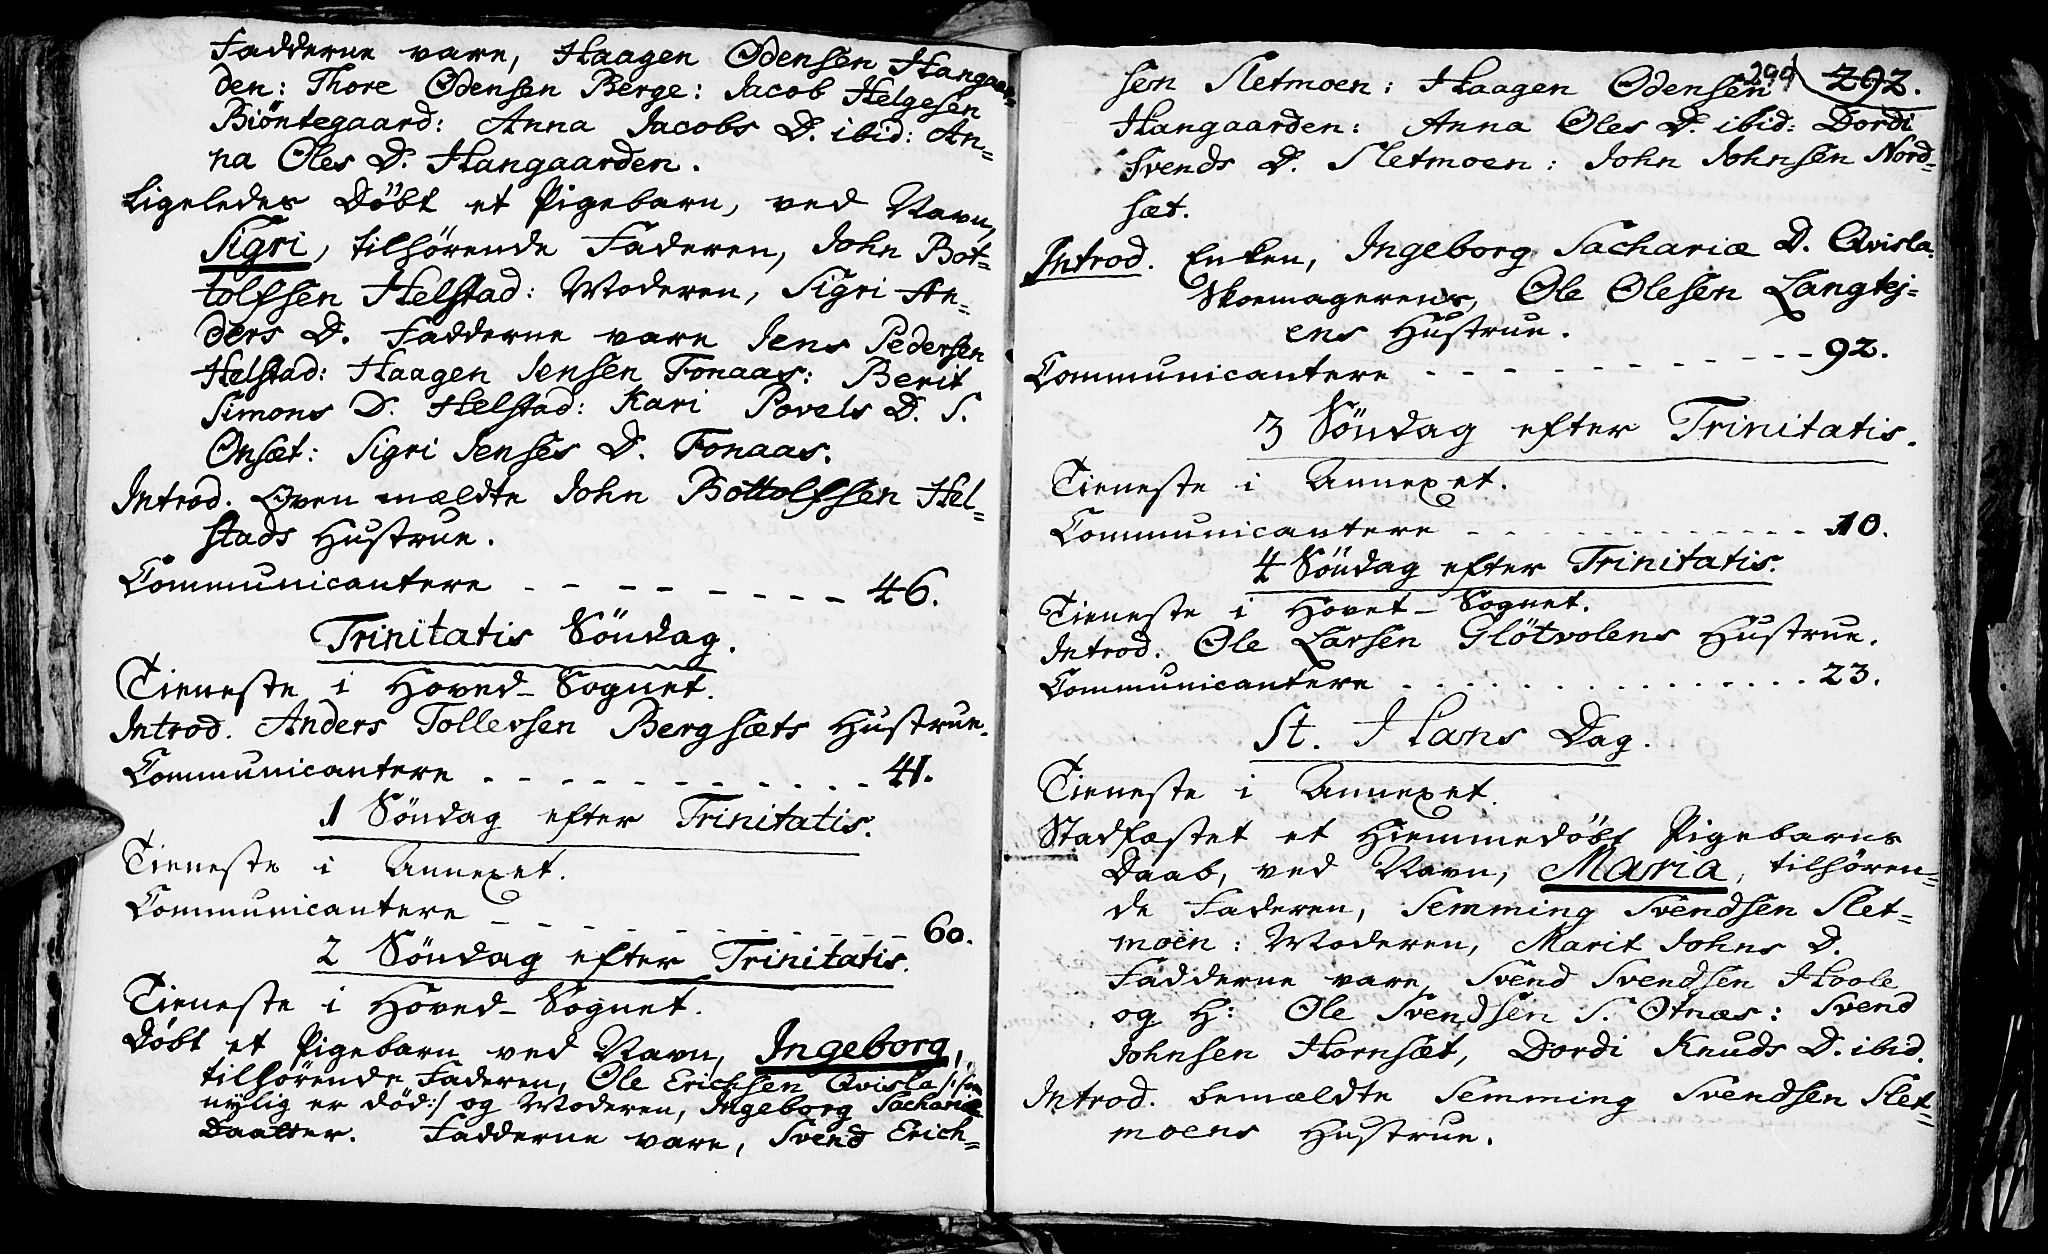 Fadderne vare, Haagen Odensen Hangaar-
den: Thore Odensen Berge: Jacob Helgesen
Biöntegaard: Anna Jacobs D. ibid: An-
na Oles D. Hangaarden.
Ligeledes Döbt et Pigebarn, ved Navn,
Sigri, tilhörende Faderen, John Bot-
tolfsen Helstad: Moderen, Sigri An-
ders D. Fadderne vare Jens Pedersen
Helstad: Haagen Jensen Fonaas: Berit
Simons D. Helstad: Kari Povels D. S.
Onsæt: Sigri Jenses D. Fonaas.
Introd. Oven mældte John Bottolfsen Hel-
stads Hustrue.
Communicantere - - - - - - - - 46.
Trinitatis Söndag.
Tieneste i Hoved-Sognet.
Introd. Anders Tollevsen Bergsæts Hustrue.
Communicantere - - - - - - - - - - 41.
1 Söndag efter Trinitatis.
Tieneste i Annexet.
Communicantere - - - - - - - - - - 60.
2 Söndag efter Trinitatis.
Tieneste i Hoved-Sognet.
Döbt et Pigebarn ved Navn, Ingeborg,
tilhörende Faderen, Ole Ericksen Qvisla /: som
nylig er död :/ og Moderen, Ingeborg Sachariæ
Daatter. Fadderne vare, Svend Erich-
299 292.
sen Sletmoen: Haagen Odensen
Hangaarden: Anna Oles D. ibid: Dordi
Svends D. Sletmoen: John Johnsen Nord-
sæt.
Introd. Enken, Ingeborg Sachariæ D. Qvisla.
Skoemagerens, Ole Olesen Langtej-
ens Hustrue.
Communicantere - - - - - - - - - - 92.
3 Söndag efter Trinitatis.
Tieneste i Annexet.
Communicantere - - - - - - - - - - 10.
4 Söndag efter Trinitatis.
Tieneste i Hovet-Sognet.
Introd. Ole Larsen Glötvolens Hustrue.
Communicantere - - - - - - - - - - 23.
St. Hans Dag.
Tieneste i Annexet.
Stadfæstet et Hiemmedöbt Pigebarns
Daab, ved Navn, Maria, tilhören-
de Faderen, Semming Svendsen Slet-
moen: Moderen, Marit Johns D.
Fadderne vare, Svend Svendsen Hoole
og H: Ole Svendsen S. Otnæs: Svend
Johnsen Hornsæt, Dordi Knuds D. ibid.
Introd. bemældte Semming Svendsen Slet-
moens Hustrue.